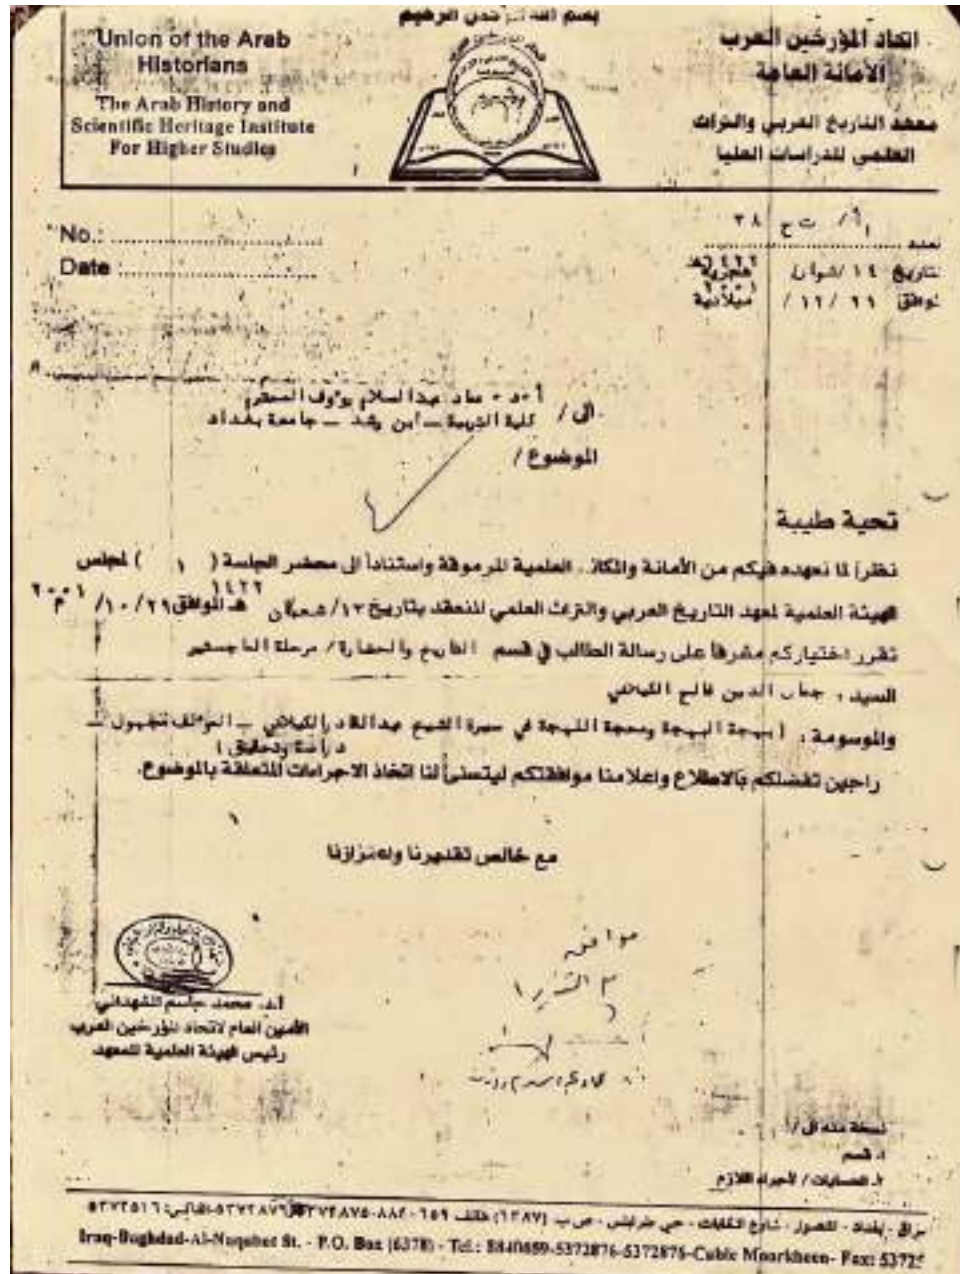 بسم الله الرحمن الرحيم
Union of the Arab
Historians
The Arab History and
Scientific Heritage Institute
For Higher Studies
اتحاد المؤرخين العرب
الأمانة العامة
معهد التاريخ العربي والتراث
العلمي للدراسات العليا
No.: ........................
Date : ........................
٣٨
تاريخ ١٤ / شوال / ١٤٢٢ هجرية
ميلادية
الى / أ٠د٠ عماد عبدالسلام رؤوف المحترم
كلية التربية ــ ابن رشد ــ جامعة بغداد
الموضوع /
تحية طيبة
نظراً لما نعهده فيكم من الأمانة والمكانة العلمية المرموقة واستناداً الى محضر الجلسة ( ١ ) لمجلس
الهيئة العلمية لمعهد التاريخ العربي والتراث العلمي المنعقد بتاريخ ١٣/شعبان ١٤٢٢ هـ الموافق ٢٩/١٠/٢٠٠١م
تقرر اختياركم مشرفاً على رسالة الطالب في قسم التاريخ والحضارة / مرحلة الماجستير
السيد ، جمال الدين فالح الكيلاني
والموسومة ، ( بهجة البهجة ومحجة اللهجة في سيرة الشيخ عبدالقادر الكيلاني ــ المؤلف مجهول ــ
دراسة وتحقيق )
راجين تفضلكم بالاطلاع واعلامنا موافقتكم ليتسنى لنا اتخاذ الاجراءات المتعلقة بالموضوع.
مع خالص تقديرنا واعتزازنا
موافق
مع التقدير
أ.د. محمد جاسم المشهداني
الأمين العام لاتحاد المؤرخين العرب
رئيس الهيئة العلمية للمعهد
نسخة منه الى /
١. قسم
٢. الحسابات / لأجراء اللازم
Iraq-Baghdad-Al-Naqabat St. - P.O. Box (6378) - Tel.: 8840659-5372876-5372875-Cable Moarkheen- Fax: 5372